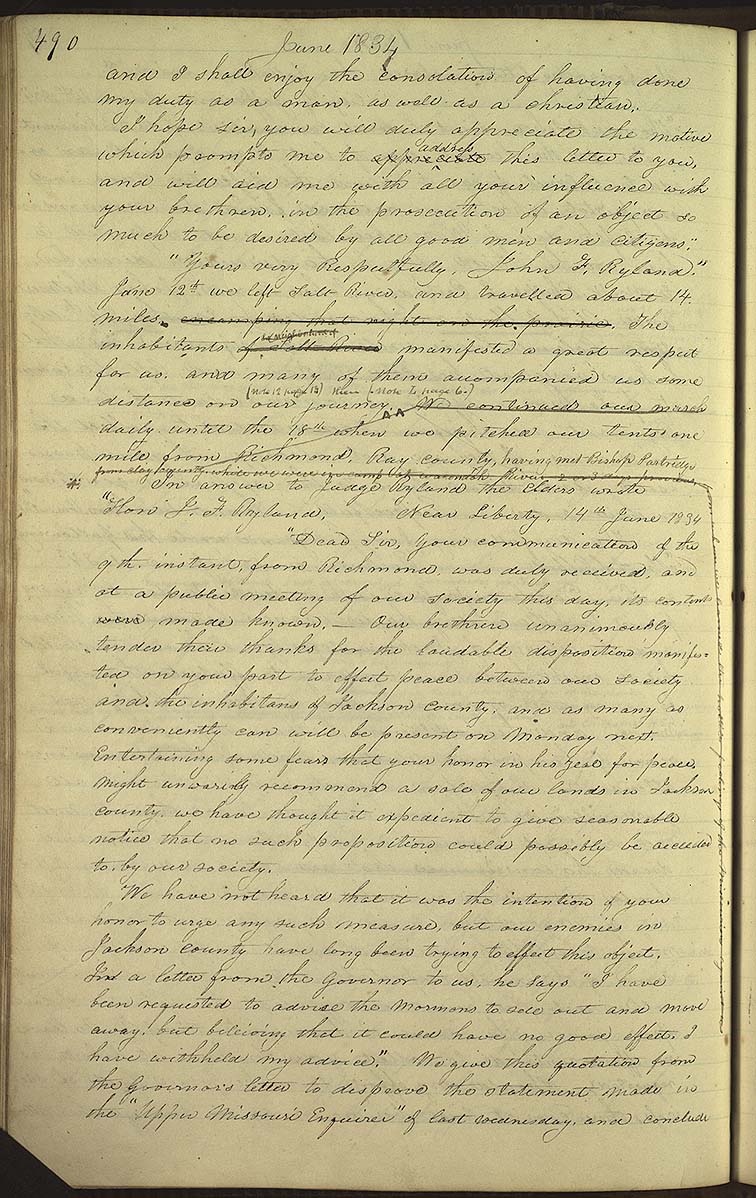 490
June 1834
and I shall enjoy the consolation of having done
my duty as a man, as well as a christian.
I hope Sir, you will duly appreciate the motive
which prompts me to appreciate address this letter to you,
and will aid me with all your influence with
your brethren, in the prosecution of an object so
much to be desired by all good men and citizens."
"Yours very Respectfully, John F. Ryland."
June 12th we left Salt River, and travelled about 14
miles, encamping that night on the prairie. The
inhabitants of Salt River manifested a great respect
for us. and many of them acompanied us some
distance on our journey. We continued our march
(note 12 page 12)
daily until the 18th when we pitched our tents one
mile from Richmond, Ray county, having met Bishop Partridge
* In answer to Judge Ryland the Elders wrote
"Hon J. F. Ryland, Near Liberty, 14th June 1834
"Dear Sir, Your communication of the
9th. instant, from Richmond, was duly received, and
at a public meeting of our society this day, its contents
were made known. — Our brethren unanimously
tender their thanks for the laudable disposition manifes-
ted on your part to effect peace between our society
and the inhabitans of Jackson county, and as many as
conveniently can will be present on Monday next.
Entertaining some fears that your honor in his zeal for peace,
might unwarily recommend a sale of our lands in Jackson
county, we have thought it expedient to give seasonable
notice that no such proposition could possibly be acceded
to, by our society.
"We have not heard that it was the intention of your
honor to urge any such measure, but our enemies in
Jackson county have long been trying to effect this object.
In a letter from the Governor to us, he says "I have
been requested to advise the Mormons to sell out and move
away, but believing that it could have no good effect, I
have withheld my advice." We give this quotation from
the Governor's letter to disprove the statement made in
the "Upper Missouri Enquirer" of last wednesday, and conclude